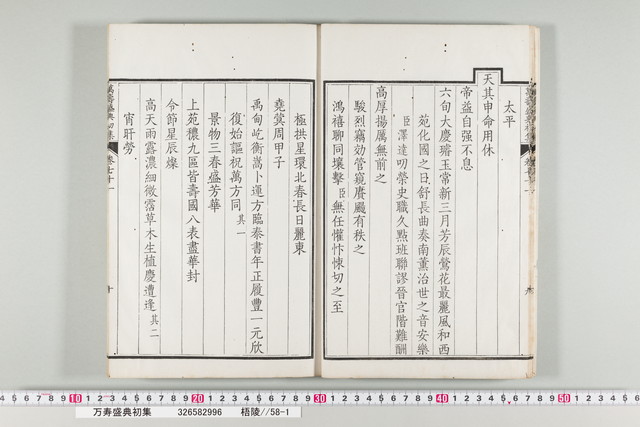 太平
天其申命用休
帝益自强不息
六旬大慶璿玉常新三月芳辰鶯花最麗風和西
苑化國之日舒長曲奏南薰治世之音安樂
臣澤達叨榮史職久點班聯謬晉官階難酬
高厚揚厲無前之
駿烈竊効管窺賡颺有秩之
鴻禧聊同壤擊臣無任懽忭悚切之至
極拱星環北春長日麗東
堯蓂周甲子
禹甸屹衡嵩卜運方臨泰書年正履豐一元欣
復始謳祝萬方同其一
景物三春盛芳華
上苑穠九區皆壽國八表盡華封
令節星辰燦
宵旰勞
高天雨露濃細微霑草木生植慶遭逢其二
卷七十一
十
10 20 30 40 50
万寿盛典初集 326582996 梧陵//58-1